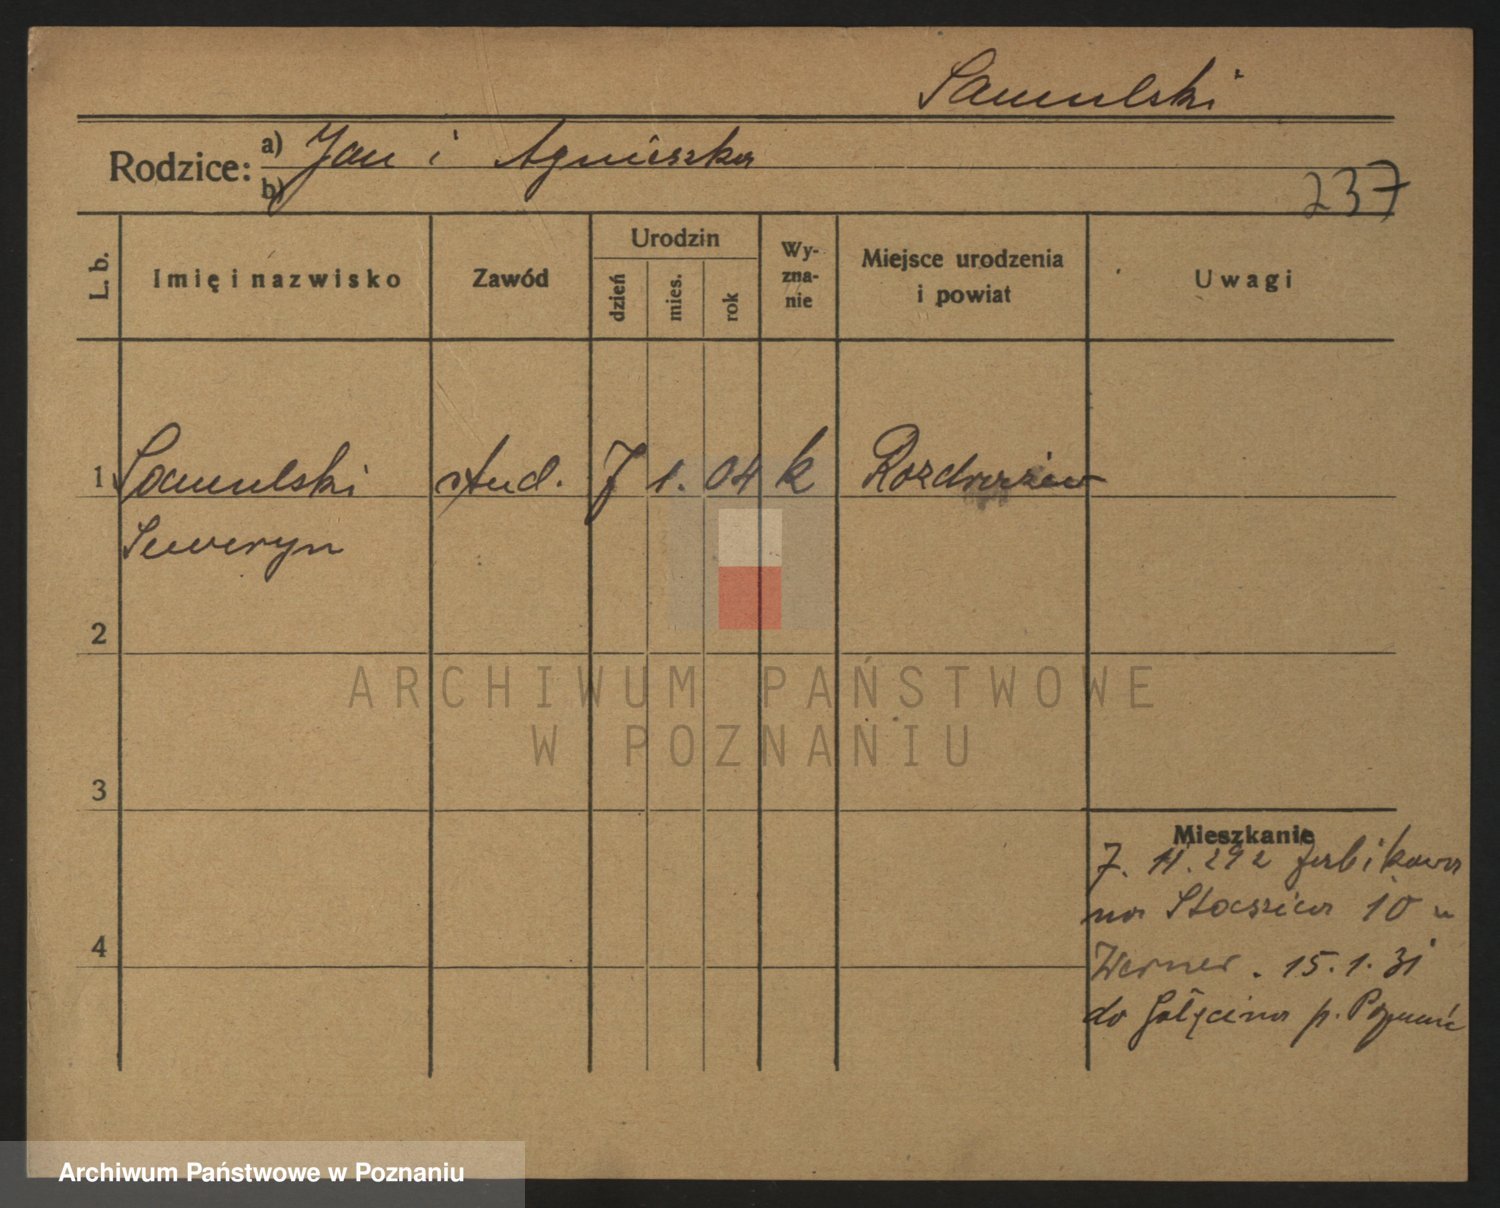 Samulski
Rodzice: a) Jan i Agnieszka
b)
237
L. b.
Imię i nazwisko
Zawód
Urodzin
dzień
mies.
rok
Wy-
zna-
nie
Miejsce urodzenia
i powiat
Uwagi
1 Samulski stud. 7 1. 04 k Rozdrażew
Seweryn
2
3
4
Mieszkanie
7. 11. 29 z
na Staszica 10 u
Werner. 15.1.31
do Gołęcina p. Poznań
ARCHIWUM PAŃSTWOWE
W POZNANIU
Archiwum Państwowe w Poznaniu